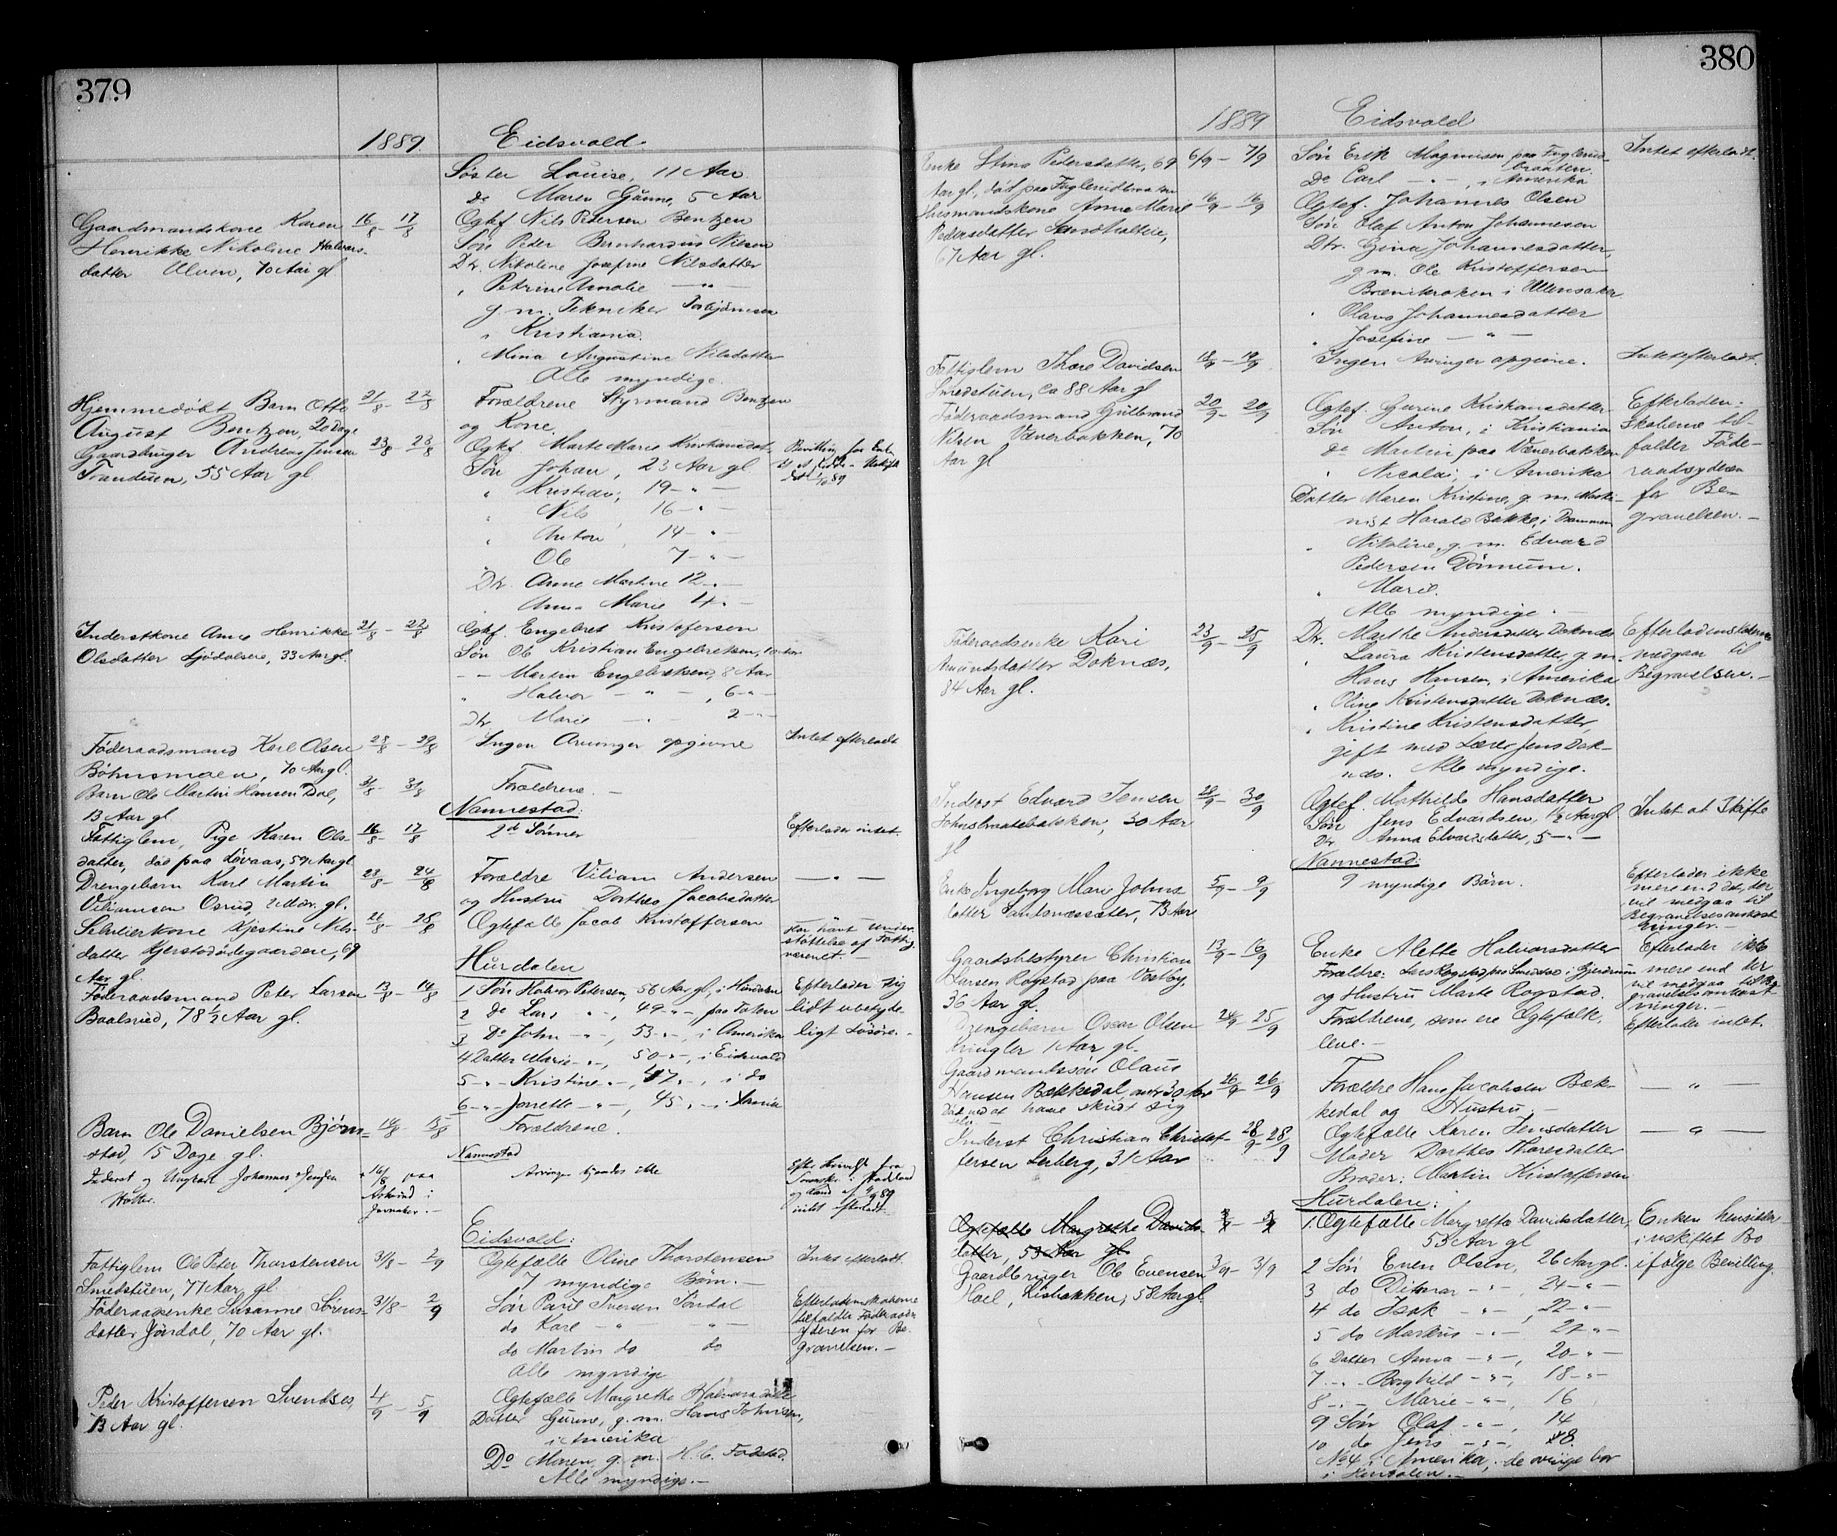 379
1889 Eidsvold
Søster Louise, 11 Aar
do Maren Gunne, 5 Aar
Gaardmandskone Karen 16/8 - 17/8 Egtef Nils Petersen Bentzen
Henrikke Nikoline Halvors- Søn Peder Bernhardus Nilsen
datter Ulven, 70 Aar gl Dtr. Nikoline Josefine Nilsdatter
" Petrine Amalie - " -
g. m. Tekniker
i Kristiania
" Mina Augustine Nilsdatter
Alle myndige.
Hjemmedøbt Barn Otto 21/8 - 22/8 Forældrene Styrmand Bentzen
August Bentzen, 20 Dage og Kone.
Gaardbruger Andreas Jensen 23/8 - 23/8 Egtef Marte Marie Kristiansdat. Bevilling for Enken
Trandum, 55 Aar gl Søn Johan, 23 Aar gl
" Kristian, 19 - " -
" Nils 16 - " -
" Anton, 14 - " -
" Ole 7 - " -
Dtr. Anne Martine 12 - " -
" Anna Marie 4 " -
Inderstkone Anne Henrikke 21/8 - 22/8 Egtef. Engebret Kristofersen
Olsdatter Sjødalseie, 33 Aar gl. Søn Ole Kristian Engebretsen, 10 Aar
- - Martin Engebretsen, 8 Aar
" Halvor - " - , 6 " -
Dtr Marie - " - 2 - " -
Føderaadsmand Karl Olsen 28/8 - 29/8 Ingen Arvinger opgivne Intet efterladt
Bøhnsmoen, 70 Aar gl.
Barn Ole Martin Hansen Dal, 31/8 - 31/8 Forældrene. -
13 Aar gl
Nannestad:
Fattiglem, Pige Karen Ols- 16/8 - 17/8 2de Sønner Efterlader intet.
datter, død paa Løvaas, 59 Aar gl.
Drengebarn Karl Martin 23/8 - 24/8 Forældre Viliam Andersen - " -
Viliamsen Osrud, 2 Mdr. gl. og Hustru Dorthea Jacobsdatter
Selveierkone Kjestine Nils- 26/8 - 28/8 Egtefælle Jacob Kristoffersen Har havt under-
datter Kjerstadødegaarden, 69 støttelse af Fattig-
Aar gl. væsenet -
Hurdalen
Føderaadsmand Peter Larsen 13/8 - 14/8 1 Søn Halvor Petersen, 56 Aar gl, i Hurdalen Efterlader sig
Baalsrud, 78 1/2 Aar gl. 2 do Lars - " - , 49 - " - , paa Toten lidt ubetyde-
3 Do John - " - , 53 - " - , i Amerika ligt Løsøre. -
4 Datter Marie - " - , 50 - " - , i Eidsvold
5 - " - Kristine - " - , 47 " - , i do
6 - " - Jonette - " - , 45 " - , i
Barn Ole Danielsen Bjørn- 14/8 - 15/8 Forældrene.
stad 15 Dage gl.
Nannestad
Inderst og Ungkarl Johannes Jensen 16/8 paa Arvinger kjendes ikke Efter
Askind i
Jevnaker. - intet efterladt -
Eidsvold:
Fattiglem Ole Peter Thorstensen 31/8 - 2/9 Egtefælle Oline Thorstensen Intet efterladt.
Smedstuen, 77 Aar gl. 7 myndige Børn. -
Føderaadsenke Susanne Søren- 31/8 - 2/9 Søn Paul Iversen Jøndal Efterladenskaberne
datter Jøndal, 70 Aar gl. do Karl - " - " - tilfalder Føderaads-
do Martin do do yderen for Be-
Alle myndige gravelsen. -
Peder Kristoffersen Svendse, 4/9 - 5/9 Egtefælle Margrethe Halvorsdatter
73 Aar gl. Datter Gurine, g. m. Hans Johnsen,
i Amerika
Do Maren g. m. H. C. Fodstad.
Alle myndige. -
380
1889 Eidsvold
Enke Stina Pedersdatter, 69 6/9 - 7/9 Søn Erik Magnusen paa Fuglerud- Intet efterladt.
Aar gl., død paa Fuglerudbraaten braaten.
Do Carl - " - , i Amerika
Husmandskone Anne Marie 16/9 - 16/9 Egtef. Johannes Olsen
Pedersdatter Sandholteie, Søn Olaf Anton Johannesen
67 Aar gl. Dtr. Gina Johannesdatter,
g. m. Ole Kristoffersen
Brænikroken i Ullensaker
" Olava Johannesdatter
" Josefine - " -
Fattiglem Thore Davidsen 18/9 - 19/9 Ingen Arvinger opgivne. Intet efterladt.
Smedstuen, ca 88 Aar gl
Føderaadsmand Gulbrand 20/9 - 20/9 Egtef. Gurine Kristiansdatter Efterladen-
Nilsen Vænerbakken, 70 Søn Anton, i Kristiania skaberne til-
Aar gl do Martin paa Vænerbakken falder Føde-
" Nicolai, i Amerika raadsyderen
Datter Maren Kristine, g. m. Maski- for Be-
nist Harald Bakke, i Drammen gravelsen. -
" Nikoline, g. m. Edvard
Pedersen Dønnum.
" Marie.
Alle myndige. -
Føderaadsenke Kari 23/9 - 25/9 Dtr. Marthe Andersdatter Doknæs Efterladenskaberne
Amundsdatter Doknæs, " Laura Kristensdatter, g. m. medgaa til
84 Aar gl. Hans Hansen, i Amerika Begravelsen. -
" Oline Kristensdatter Doknæs.
" Kristine Kristensdatter,
gift med Lærer Jens Dok-
næs. Alle myndige.
Inderst Edvard Jensen 28/9 - 30/9 Egtef. Mathilde Hansdatter Intet at Skifte
Johnsbraatebakken, 30 Aar Søn Jens Edvardsen, 1/2 Aar gl
gl Dtr Anna Edvardsdatter, 5 - " -
Nannestad:
Enke Ingeborg Marie Johns- 5/9 - 9/9 9 myndige Børn. Efterlader ikke
datter Sandsnessæter, 73 Aar mere end det, der
vil medgaa til
Begravelsesomkost-
ninger. -
Gaardsbestyrer Christian 13/9 - 16/9 Enke Alette Halvorsdatter Efterlader ikke
Larsen Rogstad paa Vestby, Forældre: Lars Rogstad paa Smedstad i Gjerdrum mere end der
36 Aar gl. og Hustru Marte Rogstad. vil medgaa til Be-
gravelsesomkost-
ninger. -
Drengebarn Oscar Olsen 24/9 25/9 Forældrene, som ere Egtefolk, Efterlader intet.
Kringler 1 Aar gl. leve. -
Gaardmandssøn Olaus
Hansen Bækkedal, 26/9 - 26/9 Forældre Hans Jacobsen Bæk- - " -
Død ved at have skudt sig kedal og Hustru. -
selv -
Inderst Christian Christof- 28/9 - 28/9 Egtefælle Karen Jensdatter - " -
fersen Lerberg, 31 Aar Moder Dorthea Thoresdatter
Broder: Martin Kristoffersen
Hurdalen:
Egtefælle Margrethe Davids- 1. Egtefælle Margrethe Davidsdatter, Enken hensidder
datter, 53 Aar gl. 53 Aar gl i uskiftet Bo
Gaardbruger Ole Evensen 3/9 - 3/9 2 Søn Even Olsen, 26 Aar gl. ifølge Bevilling.
Hoel, 58 Aar gl. 3 do Ditmar - " - 24 - " -
4 do Isak - " - , 22 - " -
5 do Markus - " - , 21 " -
6 Datter Anna - " - , 20 - " -
7 - " - Borghild - " - , 18 - " -
8 - " - Marie - " - , 16
9 Søn Olaf - " - , 14
10 do Jens - " - , 8.
No 4 i Amerika, de øvrige bor
i Hurdalen. -